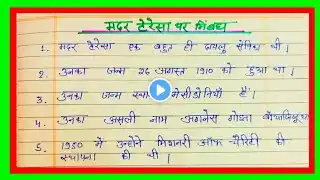 मदर टेरेसा पर निबंध
1. मदर टेरेसा एक बहुत ही दयालु थी।
2. उनका जन्म 26 अगस्त 1910 को हुआ था।
3. उनका जन्म मेसीडोनियाँ है।
4. उनका असली नाम अगनेस गोंझा था।
5. 1950 में उन्होने मिशनरी ऑफ चैरिटी की
स्थापना की थी।